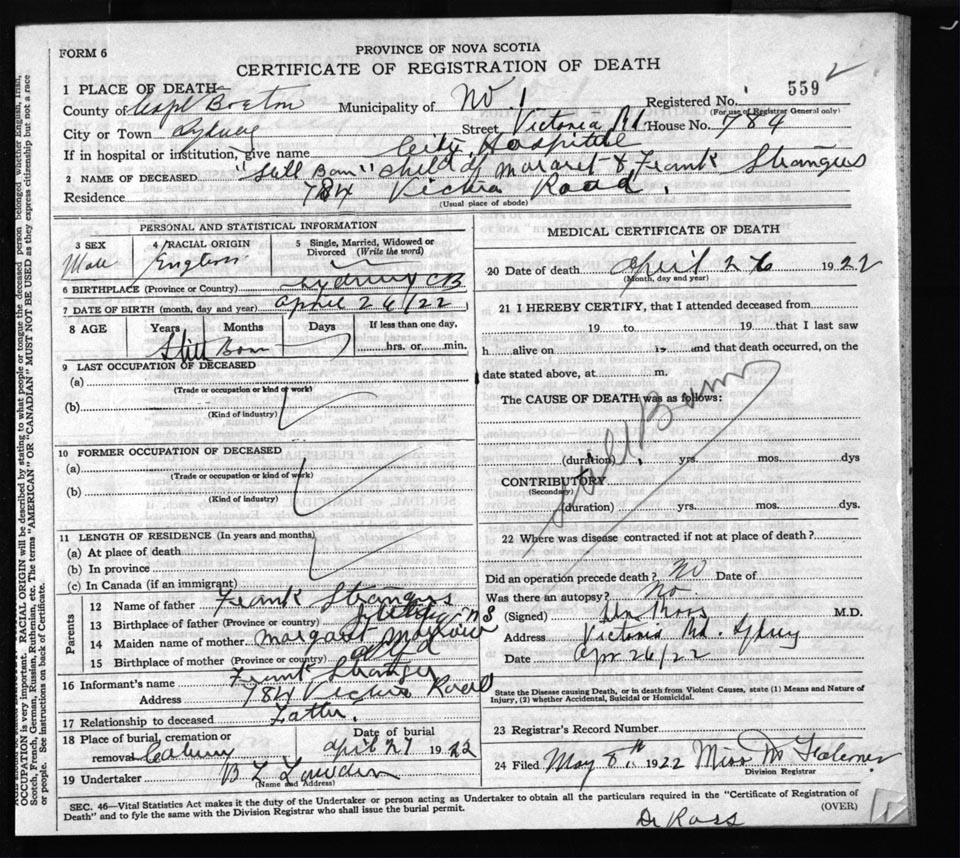 FORM 6
PROVINCE OF NOVA SCOTIA
CERTIFICATE OF REGISTRATION OF DEATH
559
1 PLACE OF DEATH
Registered No.
(For use of Registrar General only)
County of Cape Breton Municipality of No. 1
City or Town Sydney Street, Victoria Rd House No. 784
If in hospital or institution, give name City Hospital
2 NAME OF DECEASED "Still Born" child of Margaret & Frank
Residence 784 Road.
(Usual place of abode)
PERSONAL AND STATISTICAL INFORMATION
3 SEX 4 RACIAL ORIGIN 5 Single, Married, Widowed or Divorced (Write the word)
Male English
6 BIRTHPLACE (Province or Country) Sydney CB
7 DATE OF BIRTH (month, day and year) April 26/22
8 AGE Years Months Days If less than one day,
Still Born hrs. or min.
9 LAST OCCUPATION OF DECEASED
(a)
(Trade or occupation or kind of work)
(b)
(Kind of industry)
10 FORMER OCCUPATION OF DECEASED
(a)
(Trade or occupation or kind of work)
(b)
(Kind of industry)
11 LENGTH OF RESIDENCE (In years and months)
(a) At place of death
(b) In province
(c) In Canada (if an immigrant)
Parents
12 Name of father Frank
13 Birthplace of father (Province or country)
14 Maiden name of mother Margaret
15 Birthplace of mother (Province or country)
16 Informant's name Frank
Address 784 Road
17 Relationship to deceased Father.
18 Place of burial, cremation or removal Date of burial
April 27 1922
19 Undertaker
(Name and Address)
MEDICAL CERTIFICATE OF DEATH
20 Date of death April 26 1922
(Month, day and year)
21 I HEREBY CERTIFY, that I attended deceased from
19 to 19 that I last saw
h alive on 19 and that death occurred, on the
date stated above, at m.
The CAUSE OF DEATH was as follows:
Still Born
(duration) yrs. mos. dys
CONTRIBUTORY
(Secondary)
(duration) yrs. mos. dys.
22 Where was disease contracted if not at place of death?
Did an operation precede death? No Date of
Was there an autopsy? No
(Signed) Ross M.D.
Address Victoria Rd. Sydney
Date Apr 26/22
State the Disease causing Death, or in death from Violent Causes, state (1) Means and Nature of
Injury, (2) whether Accidental, Suicidal or Homicidal.
23 Registrar's Record Number
24 Filed May 8th 1922 Miss M
Division Registrar
SEC. 46—Vital Statistics Act makes it the duty of the Undertaker or person acting as Undertaker to obtain all the particulars required in the "Certificate of Registration of
Death" and to fyle the same with the Division Registrar who shall issue the burial permit. (OVER)
Dr Ross
OCCUPATION is very important. RACIAL ORIGIN will be described by stating to what people or tongue the deceased person belonged whether English, Irish,
Scotch, French, German, Russian, Ruthenian, etc. The terms "AMERICAN" OR "CANADIAN" MUST NOT BE USED as they express citizenship but not a race
or people. See instructions on back of Certificate.